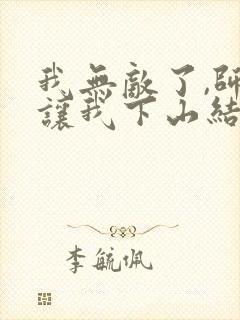 我無敵了,師
讓我下山結
李毓佩